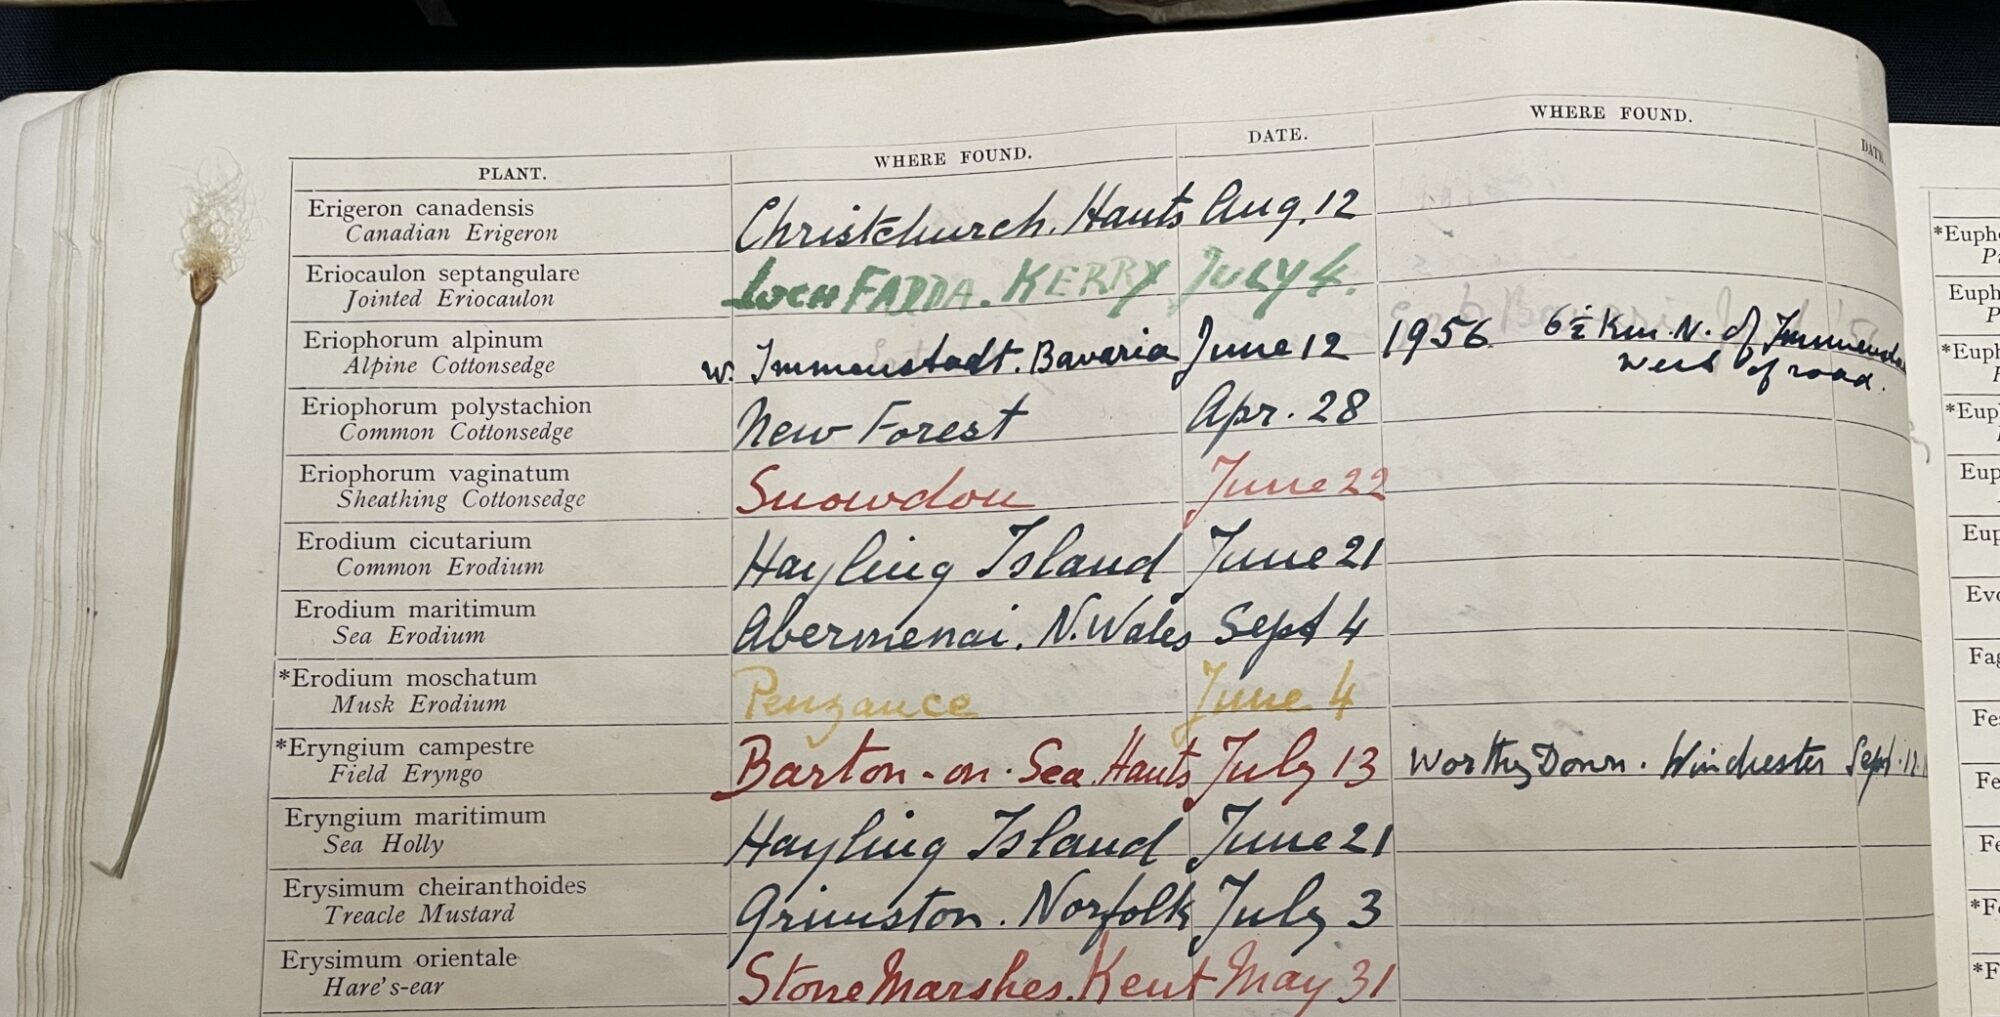 PLANT. WHERE FOUND. DATE. WHERE FOUND. DATE.
Erigeron canadensis
Canadian Erigeron
Christchurch. Hants Aug. 12
Eriocaulon septangulare
Jointed Eriocaulon
Loch FADDA. KERRY JULY 4.
Eriophorum alpinum
Alpine Cottonsedge
w. Immenstadt. Bavaria June 12 1956 6½ Km. N. of
west of road.
Eriophorum polystachion
Common Cottonsedge
New Forest Apr. 28
Eriophorum vaginatum
Sheathing Cottonsedge
Snowdon June 22
Erodium cicutarium
Common Erodium
Hayling Island June 21
Erodium maritimum
Sea Erodium
Abermenai. N. Wales Sept 4
*Erodium moschatum
Musk Erodium
Penzance June 4
*Eryngium campestre
Field Eryngo
Barton-on-Sea. Hants July 13 Worthy Down. Winchester Sept.
Eryngium maritimum
Sea Holly
Hayling Island June 21
Erysimum cheiranthoides
Treacle Mustard
Grimston. Norfolk July 3
Erysimum orientale
Hare's-ear
Stone Marshes. Kent May 31
*Euph
Euph
P
*Euph
*Eup
Eup
Eup
Evo
Fag
Fes
Fe
Fe
*Fe
*F